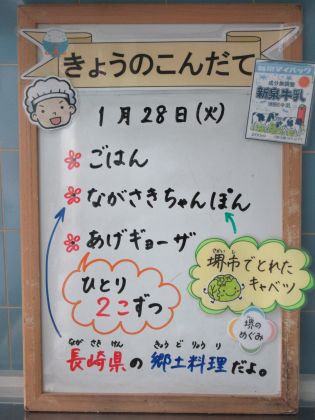 きょうのこんだて
1月28日(火)
ごはん
ながさきちゃんぽん
あげギョーザ
ひとり
2こずつ
堺市でとれた
キャベツ
堺の
めぐみ
長崎県の郷土料理だよ。
ながさきけん きょうどりょうり
成分無調整
新泉牛乳